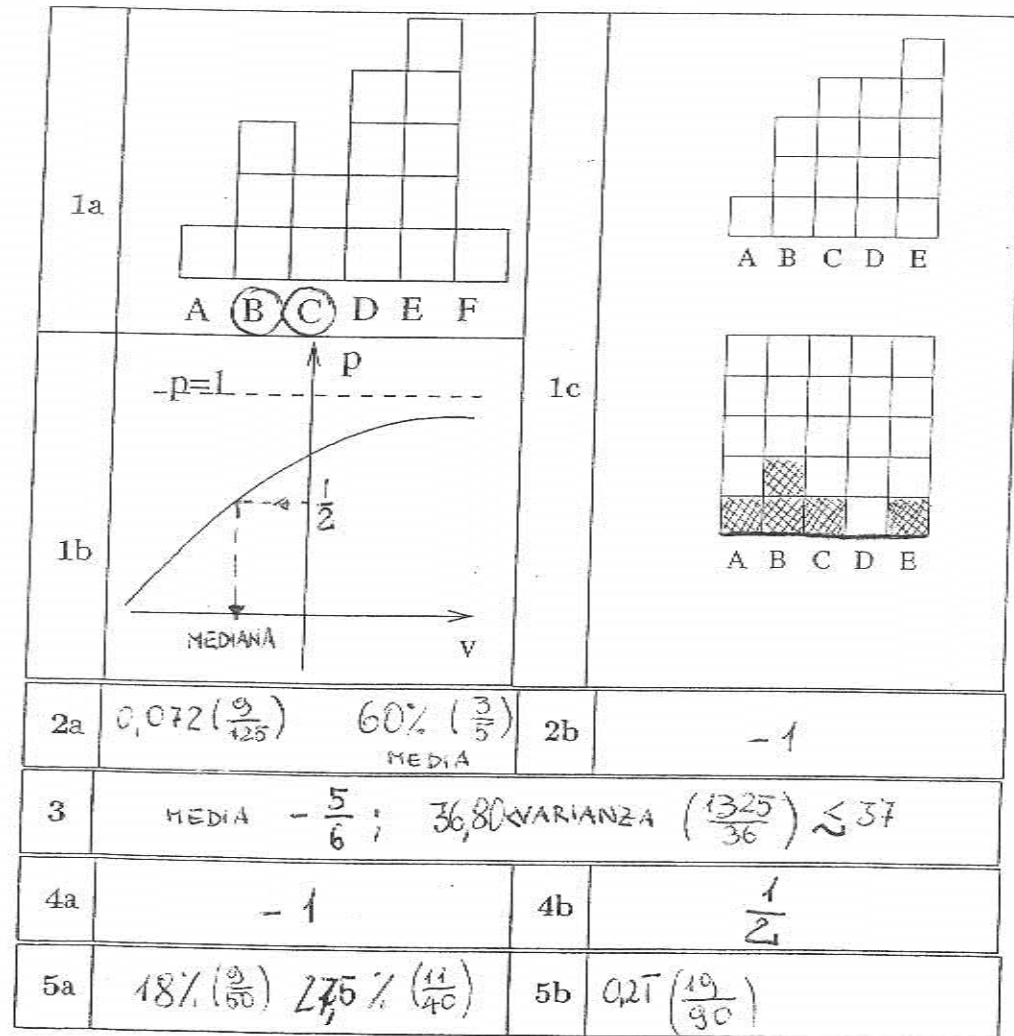 1a
A B C D E F
1b
p
p=1
1/2
MEDIANA
v
1c
A B C D E
A B C D E
2a
0,072 (9/125) 60% (3/5)
MEDIA
2b
-1
3
MEDIA - 5/6 ; 36,80< VARIANZA (1325/36) ≲ 37
4a
-1
4b
1/2
5a
18% (9/50) 27,5 % (11/40)
5b
0,21̅ (19/90)